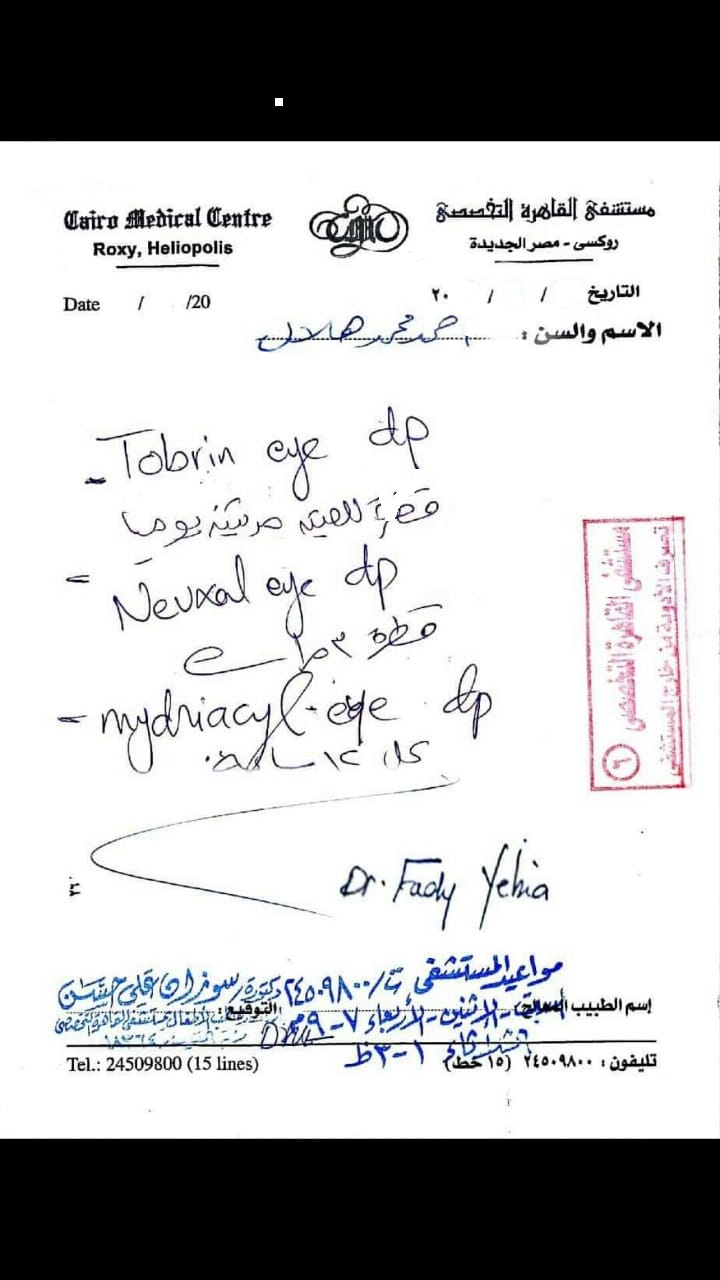 Cairo Medical Centre
Roxy, Heliopolis
CMC
مستشفى القاهرة التخصصى
روكسى - مصر الجديدة
Date / /20
التاريخ / / ٢٠
الاسم والسن : احمد محمد هلال
- Tobrin eye dp
قطرة للعين مرتين يوميا
= Nevxal eye dp
قطرة ٣ مرات
- mydriacyl eye dp
كل ساعة
مستشفى القاهرة التخصصى
تصرف الأدوية من خارج المستشفى
٦
Dr. Fady Yehia
مواعيد المستشفى ت/ ٢٤٥٠٩٨٠٠
دكتورة سوزان على حسن
إسم الطبيب المعالج :
السبت - الاثنين - الأربعاء ٧ - ٩ م
التوقيع :
الثلاثاء ١ - ٣ ظ
Tel.: 24509800 (15 lines)
تليفون : ٢٤٥٠٩٨٠٠ (١٥ خط)